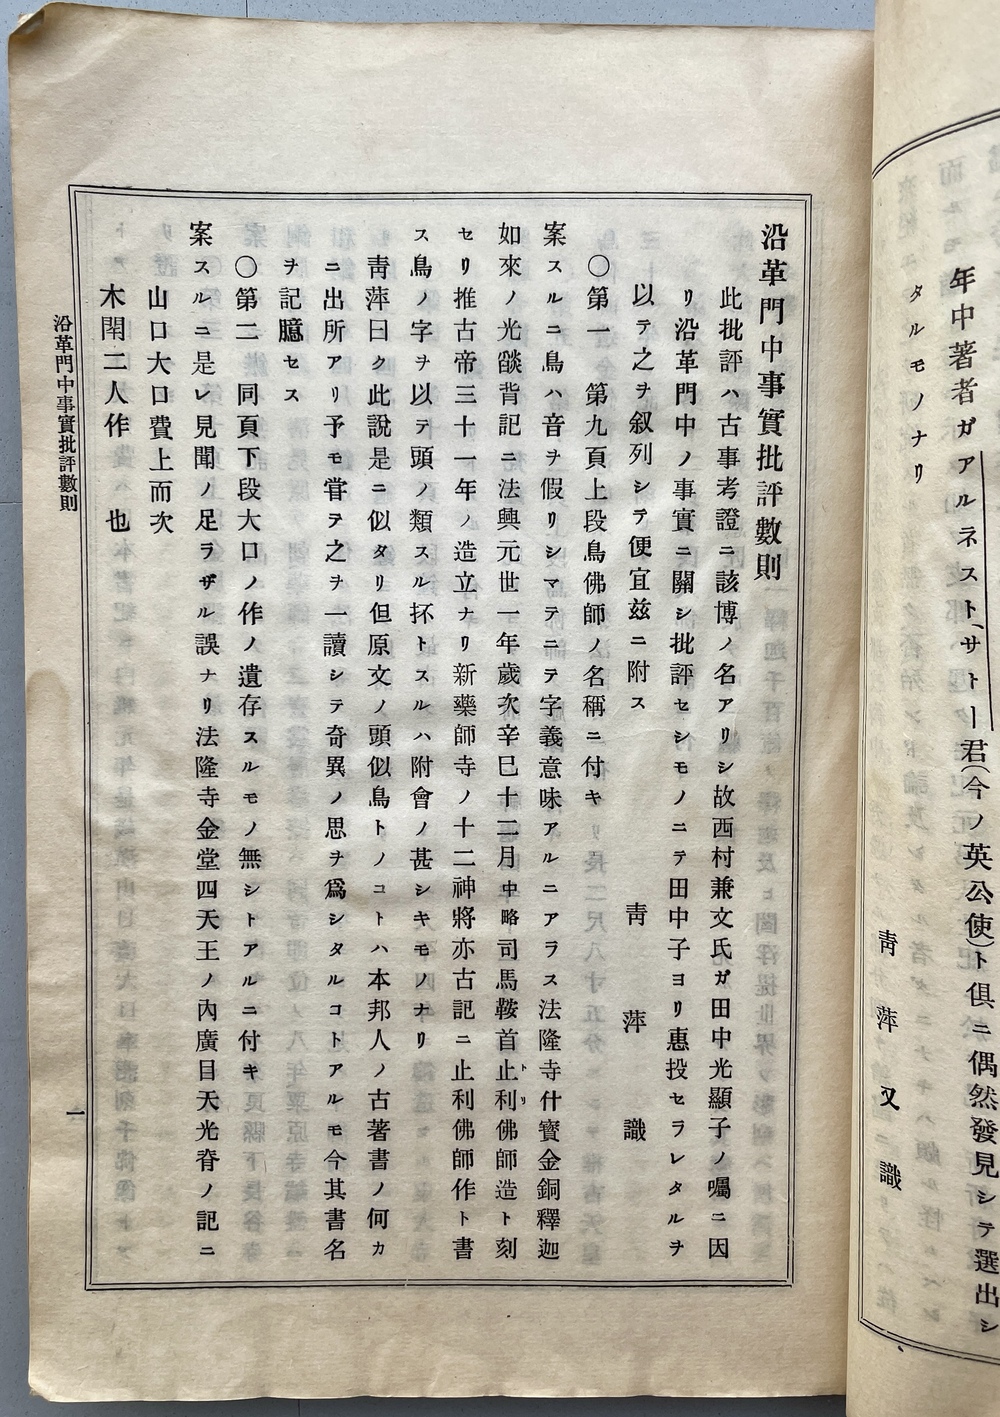 年中著者ガアルネスト、サトー君(今ノ英公使)ト倶ニ偶然發見シテ選出シ
タルモノナリ
靑萍又識
沿革門中事實批評數則
此批評ハ古事考證ニ該博ノ名アリシ故西村兼文氏ガ田中光顯子ノ囑ニ因
リ沿革門中ノ事實ニ關シ批評セシモノニテ田中子ヨリ惠投セラレタルヲ
以テ之ヲ叙列シテ便宜玆ニ附ス
靑萍識
〇第一 第九頁上段鳥佛師ノ名稱ニ付キ
案スルニ鳥ハ音ヲ假リシマテニテ字義意味アルニアラス法隆寺什寳金銅釋迦
如來ノ光燄背記ニ法興元世一年歲次辛巳十二月中略司馬鞍首止利佛師造ト刻
トリ
セリ推古帝三十一年ノ造立ナリ新藥師寺ノ十二神將亦古記ニ止利佛師作ト書
ス鳥ノ字ヲ以テ頭ノ類スル抔トスルハ附會ノ甚シキモノナリ
靑萍曰ク此說是ニ似タリ但原文ノ頭似鳥トノコトハ本邦人ノ古著書ノ何カ
ニ出所アリ予モ甞テ之ヲ一讀シテ奇異ノ思ヲ爲シタルコトアルモ今其書名
ヲ記臆セス
〇第二 同頁下段大口ノ作ノ遺存スルモノ無シトアルニ付キ
案スルニ是レ見聞ノ足ラザル誤ナリ法隆寺金堂四天王ノ內廣目天光脊ノ記ニ
山口大口費上而次
木閇二人作 也
沿革門中事實批評數則
一